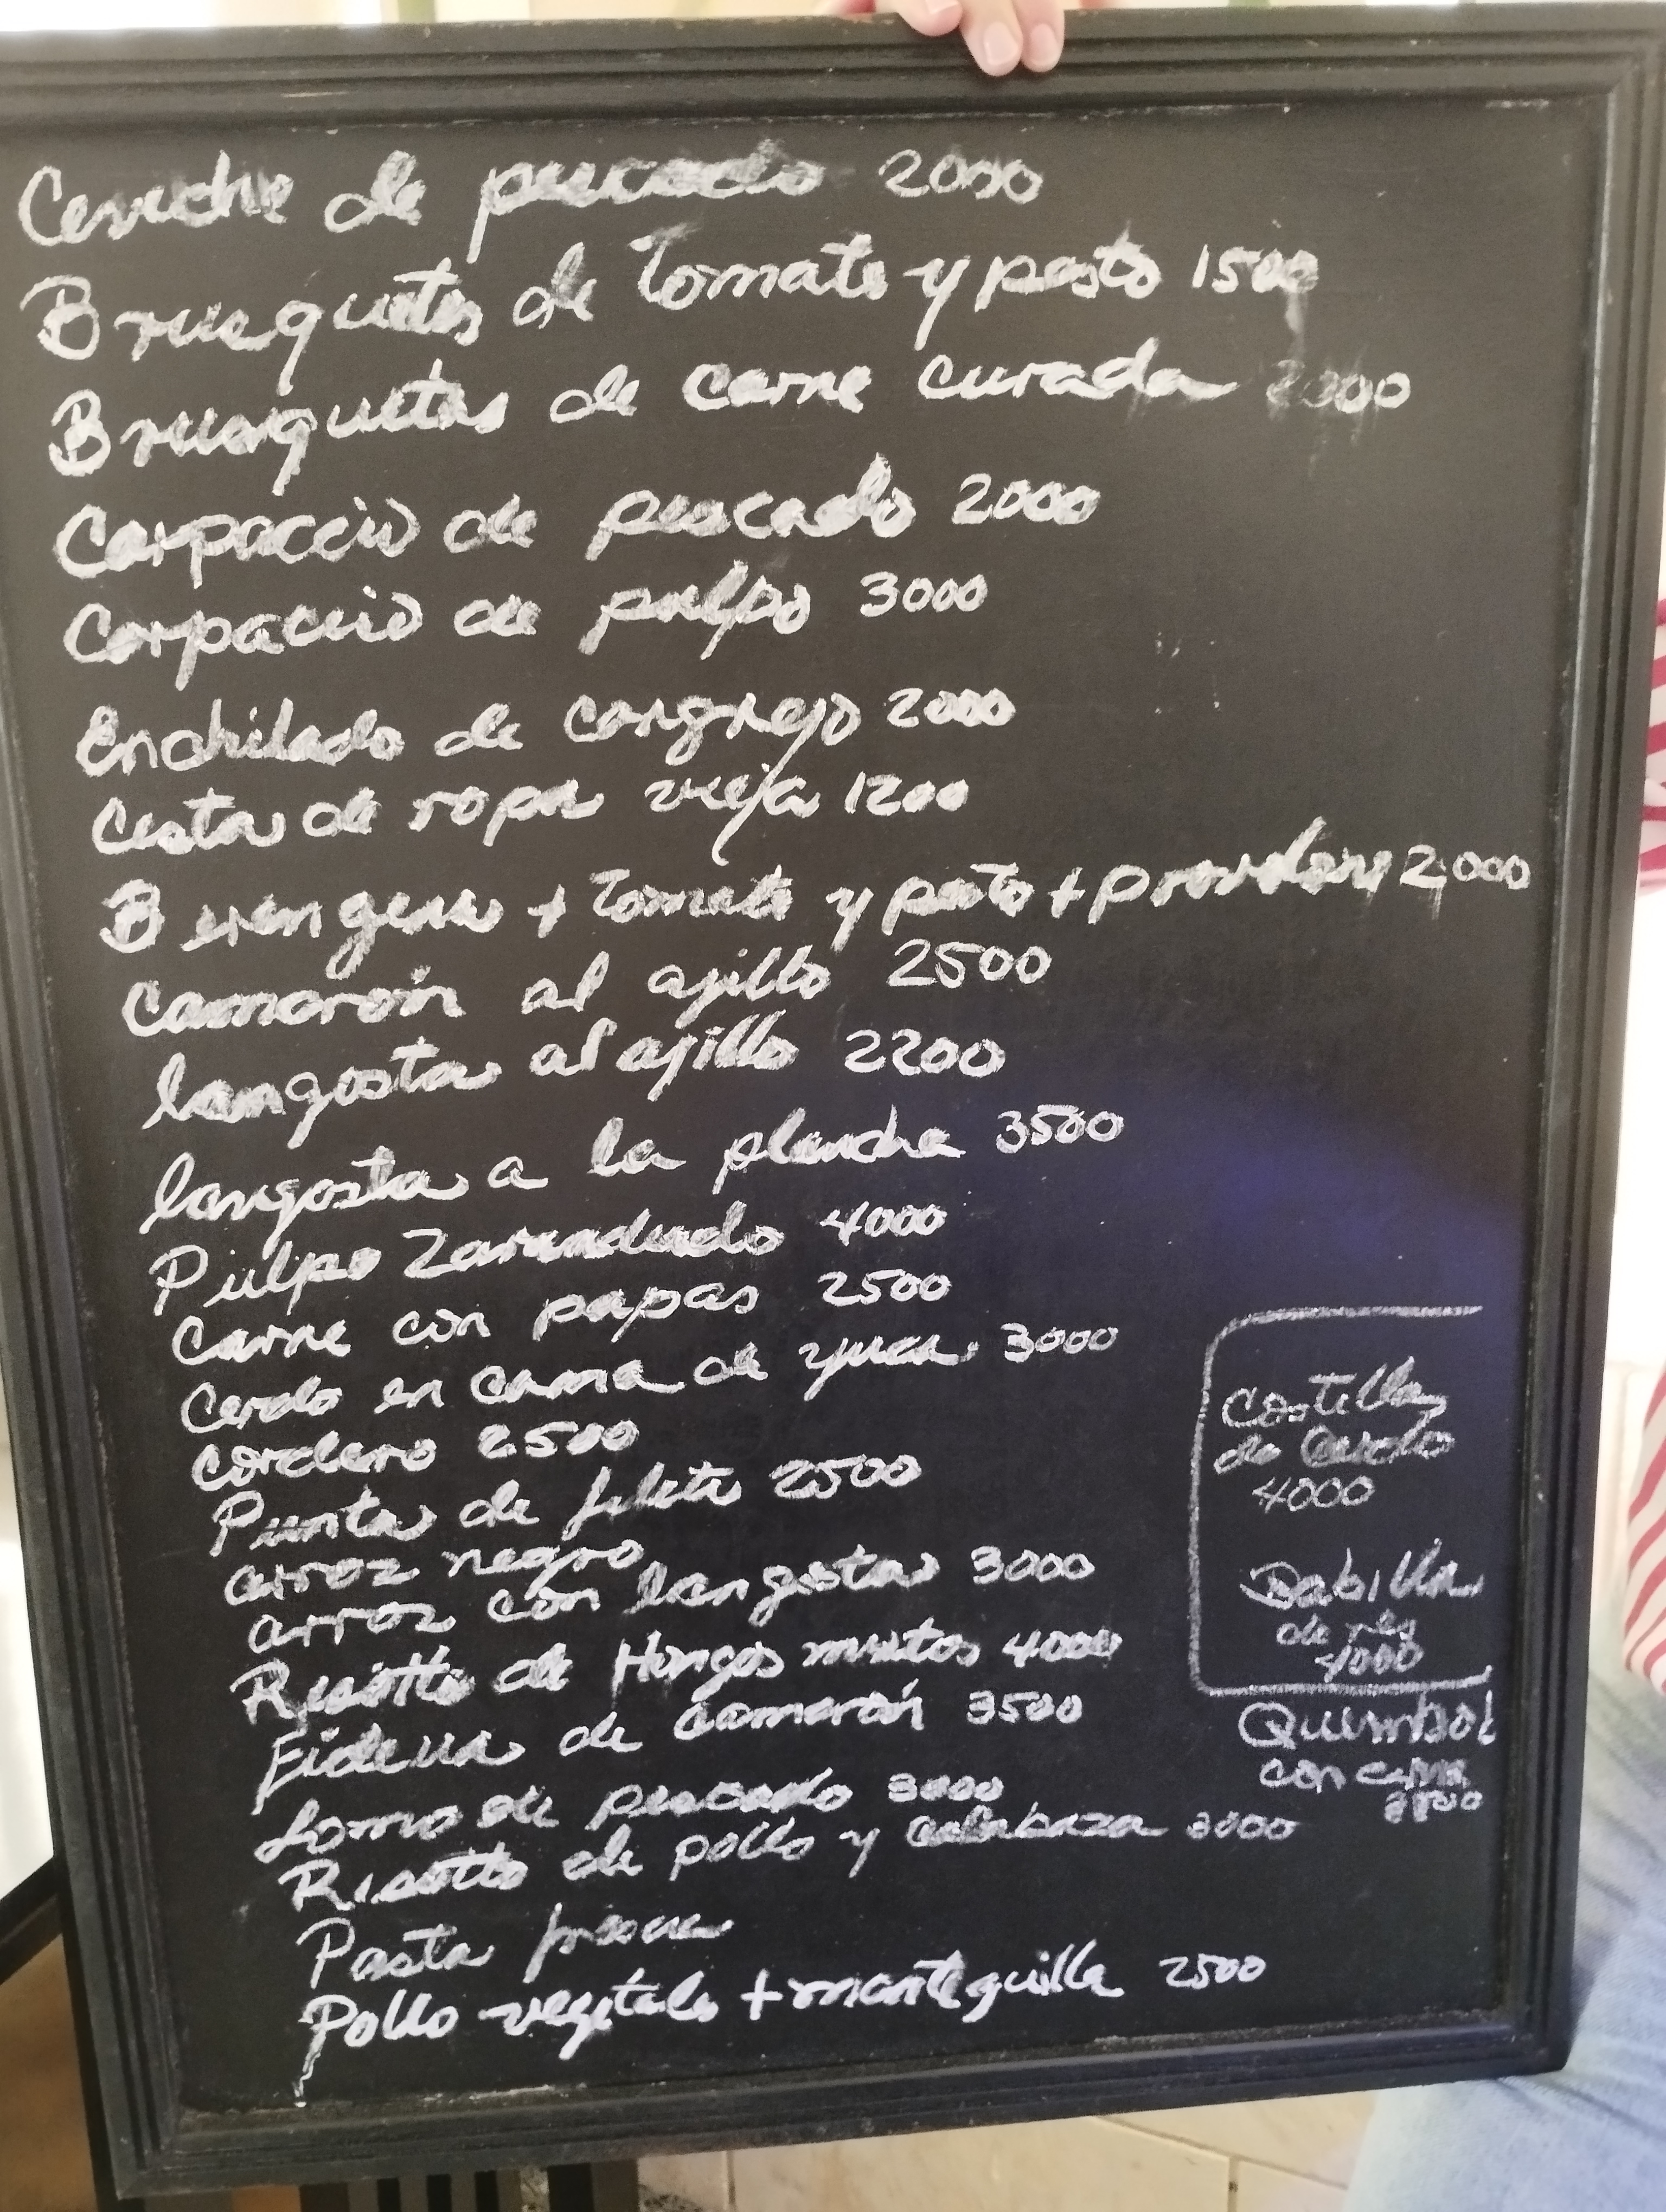 Ceviche de pescado 2000
Brusquetas de tomate y pesto 1500
Brusquetas de carne curada 2000
Carpaccio de pescado 2000
Carpaccio de pulpo 3000
Enchilado de cangrejo 2000
Cesta de ropa vieja 1200
Berengena + tomate y pesto + provolone 2000
Camarón al ajillo 2500
langosta al ajillo 2200
langosta a la plancha 3500
Pulpo Zarandeado 4000
Carne con papas 2500
Cerdo en cama de yuca 3000
cordero 2500
Punta de filete 2500
arroz negro
arroz con langosta 3000
Risotto de Hongos mixtos 4000
Fideua de Camarón 3500
Lomo de pescado 3000
Risotto de pollo y calabaza 3000
Pasta
Pollo vegetales + mantequilla 2500
Costilla
de Cerdo
4000
Babilla
de res
4000
Quimbol
con